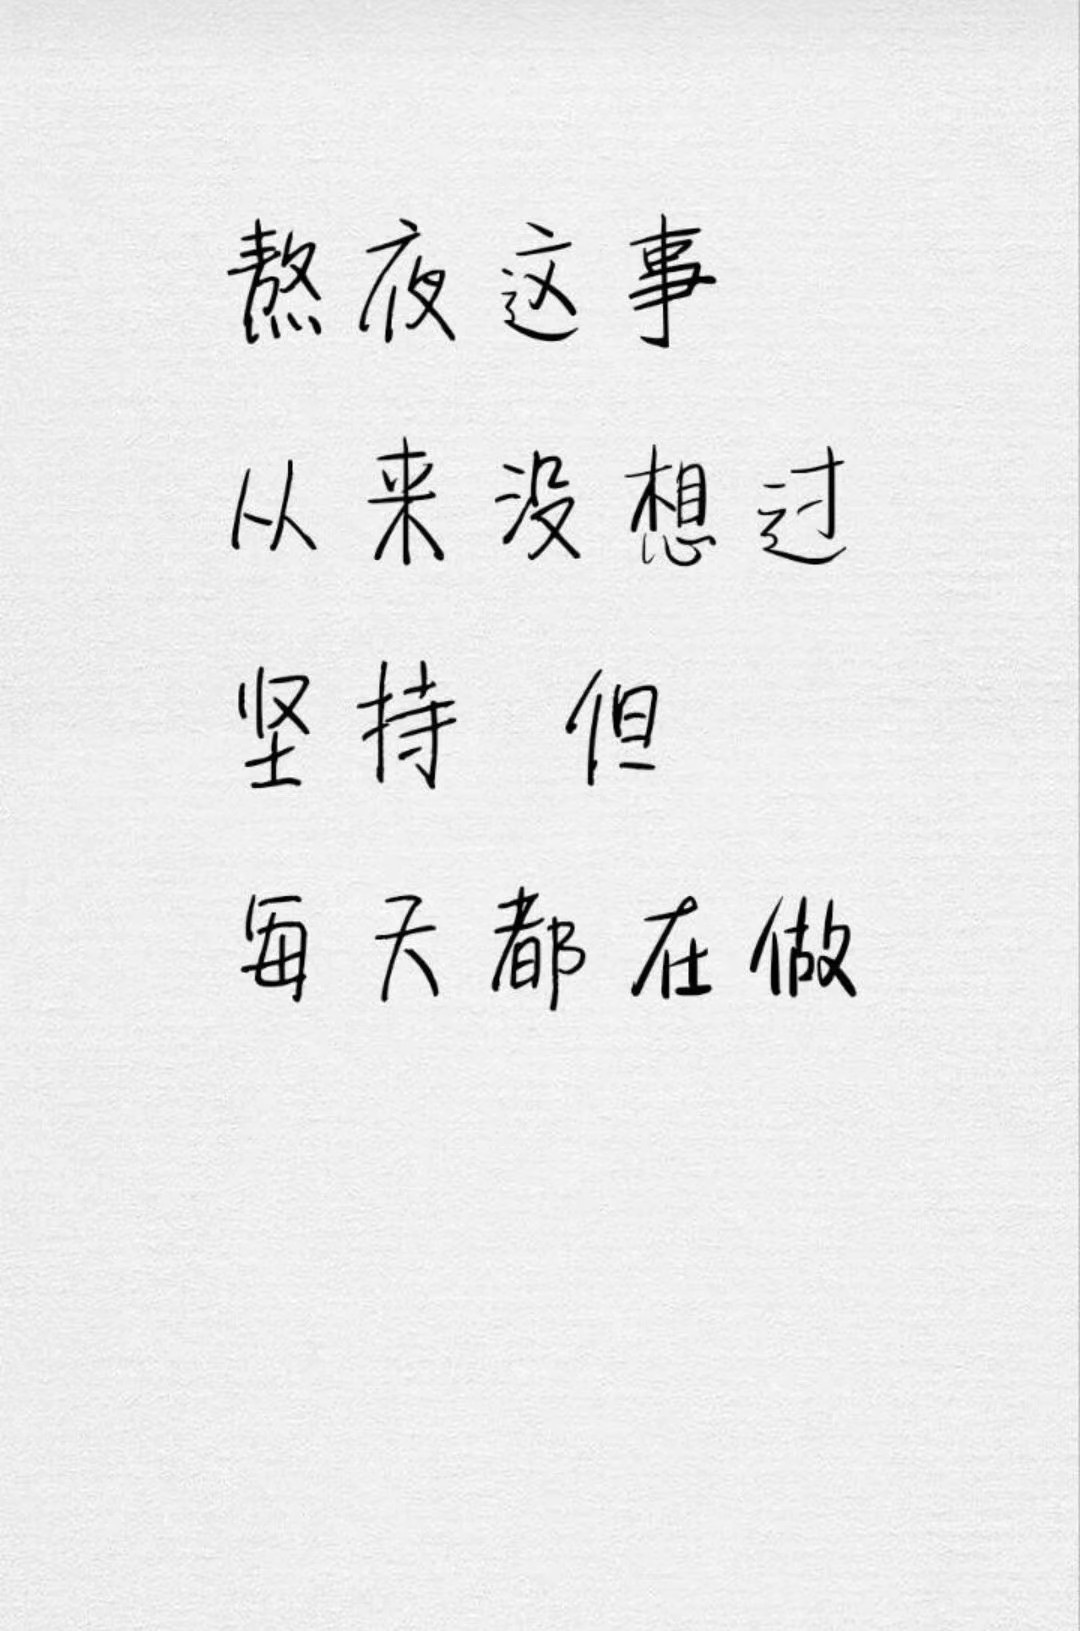 熬夜这事
从来没想过
坚持 但
每天都在做